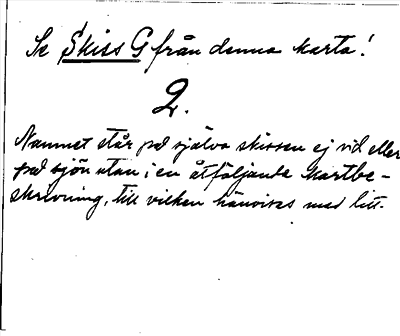 Se Skiss G från denna karta!
2.
Namnet står på själva skissen ej vid eller
på sjön utan i en åtföljande kartbe-
skrivning, till vilken hänvises med litt.